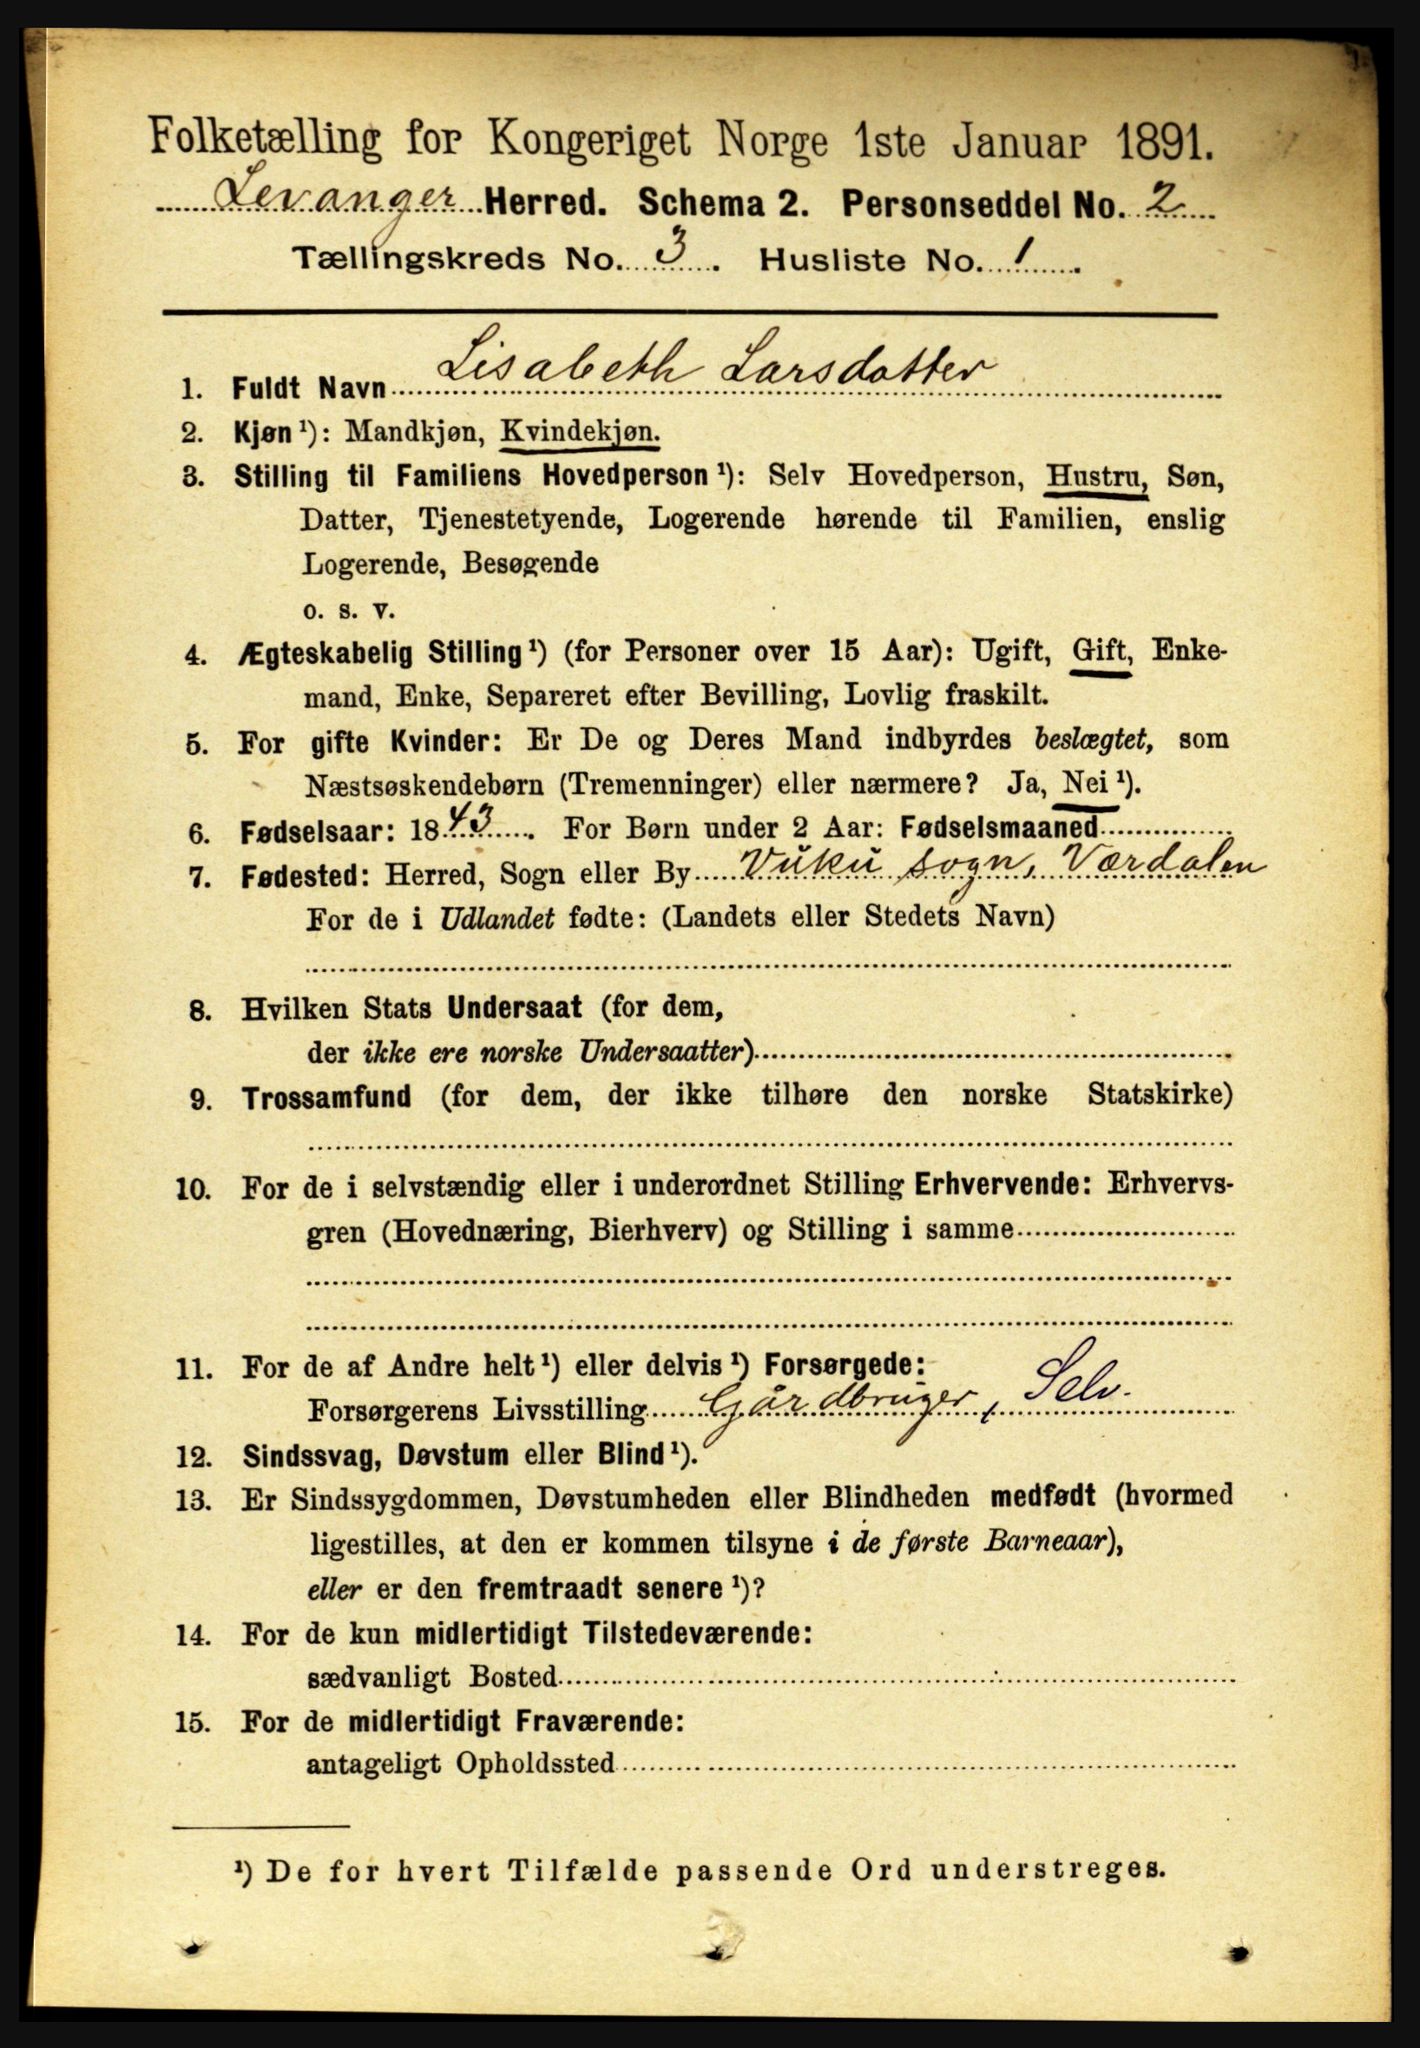 Folketælling for Kongeriget Norge 1ste Januar 1891.
Levanger Herred. Schema 2. Personseddel No. 2
Tællingskreds No. 3. Husliste No. 1.
1. Fuldt Navn Lisabeth Larsdatter
2. Kjøn ¹): Mandkjøn, Kvindekjøn.
3. Stilling til Familiens Hovedperson ¹): Selv Hovedperson, Hustru, Søn,
Datter, Tjenestetyende, Logerende hørende til Familien, enslig
Logerende, Besøgende
o. s. v.
4. Ægteskabelig Stilling ¹) (for Personer over 15 Aar): Ugift, Gift, Enke-
mand, Enke, Separeret efter Bevilling, Lovlig fraskilt.
5. For gifte Kvinder: Er De og Deres Mand indbyrdes beslægtet, som
Næstsøskendebørn (Tremenninger) eller nærmere? Ja, Nei ¹).
6. Fødselsaar: 1843. For Børn under 2 Aar: Fødselsmaaned
7. Fødested: Herred, Sogn eller By Vuku sogn, Værdalen
For de i Udlandet fødte: (Landets eller Stedets Navn)
8. Hvilken Stats Undersaat (for dem,
der ikke ere norske Undersaatter)
9. Trossamfund (for dem, der ikke tilhøre den norske Statskirke)
10. For de i selvstændig eller i underordnet Stilling Erhvervende: Erhvervs-
gren (Hovednæring, Bierhverv) og Stilling i samme
11. For de af Andre helt ¹) eller delvis ¹) Forsørgede:
Forsørgerens Livsstilling Gårdbruger, Selv.
12. Sindssvag, Døvstum eller Blind ¹).
13. Er Sindssygdommen, Døvstumheden eller Blindheden medfødt (hvormed
ligestilles, at den er kommen tilsyne i de første Barneaar),
eller er den fremtraadt senere ¹)?
14. For de kun midlertidigt Tilstedeværende:
sædvanligt Bosted
15. For de midlertidigt Fraværende:
antageligt Opholdssted
¹) De for hvert Tilfælde passende Ord understreges.